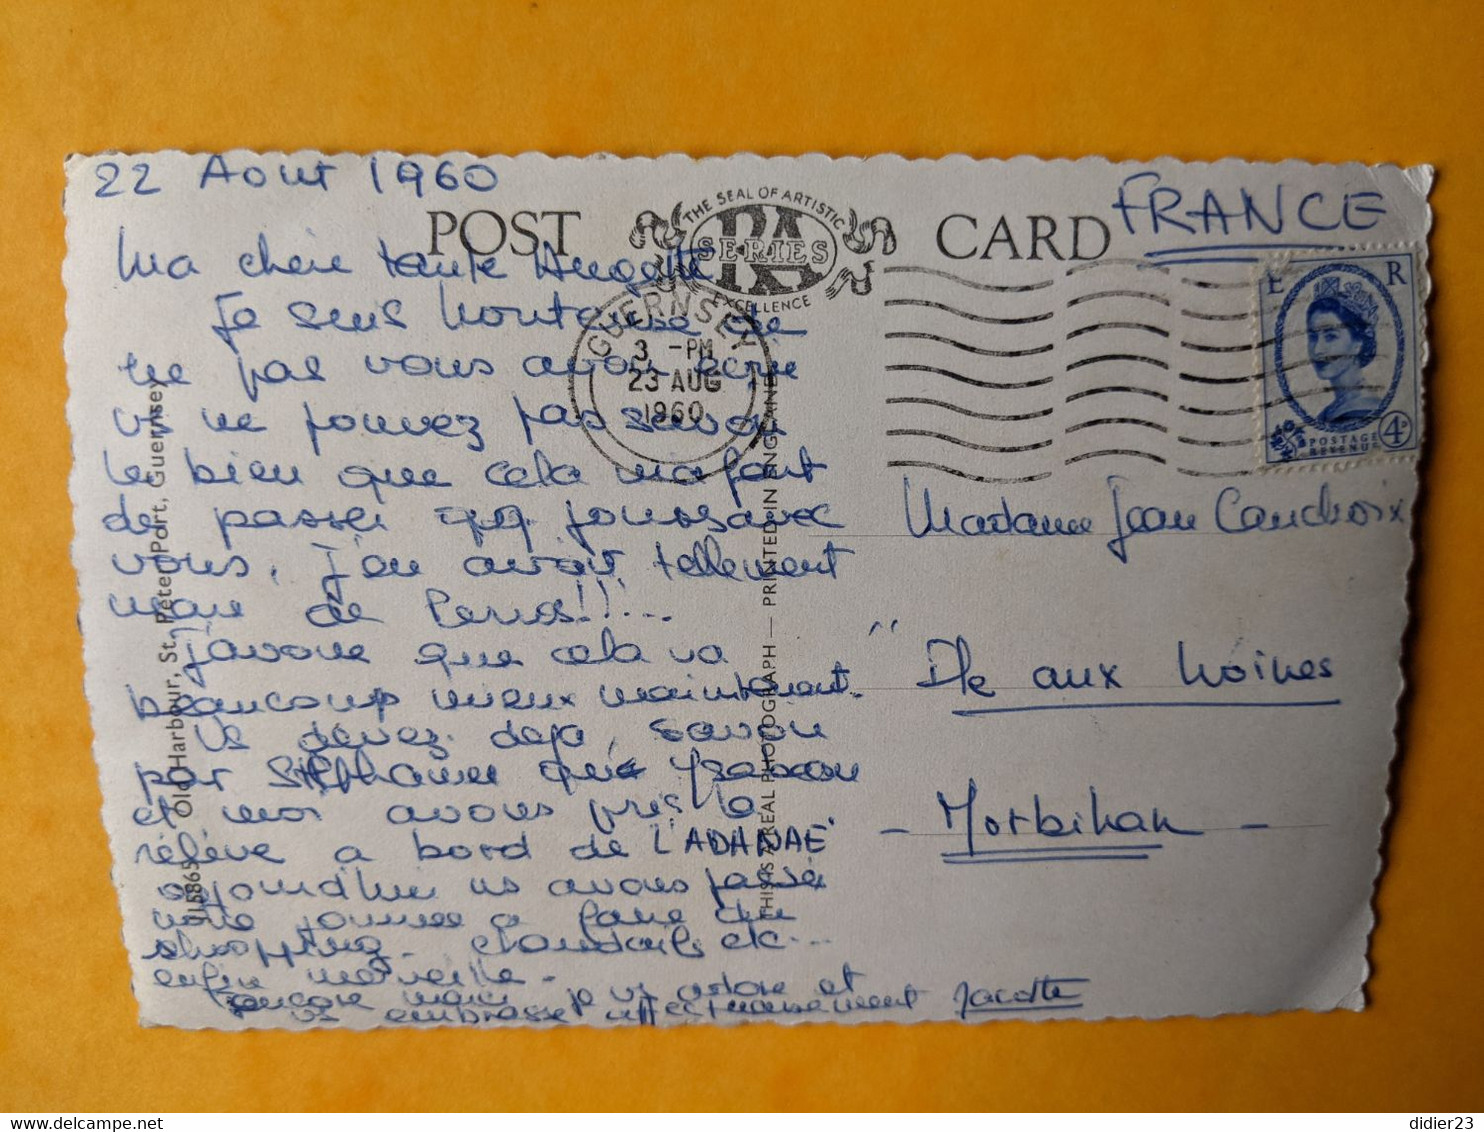 22 Aout 1960
POST CARD
THE SEAL OF ARTISTIC
RA
SERIES
EXCELLENCE
FRANCE
E R
POSTAGE
REVENUE
4D
GUERNSEY
3 -PM
23 AUG
1960
Ma chère tante
Je suis honteuse de
ne pas vous avoir écrit
vs ne pouvez pas savoir
le bien que cela m'a fait
de passer qq jours avec
vous, j'en avais tellement
marre de Paris!!!...
j'avoue que cela va
beaucoup mieux maintenant.
Vs devez deja, savoir
par Stéphane que Ysabeau
et moi avons pris la
relève a bord de L'ADANAE"
aujourdhui ns avons passé
notre journee a faire du
shopping. chandails etc...
enfin merveille.
encore merci je vs adore et
vs embrasse affectueusement Jacotte
Madame Jean Caudroix
"Ile aux Moines
- Morbihan -
J15865 Old Harbour, St. Peter Port, Guernsey
THIS IS A REAL PHOTOGRAPH — PRINTED IN ENGLAND
didier23